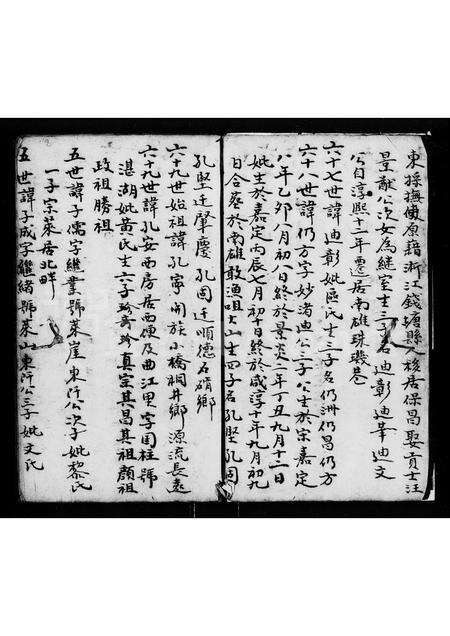 東採撫使原籍浙江錢塘縣人移居保昌娶貢士汪
景猷公次女為継室生三子名迪彰迪華迪文
公自淳熙十二年迁居南雄珠璣巷
六十七世諱迪彰妣區氏生三子名仍洲仍昌仍方
六十八世諱仍方字妙濤迪公三子公生於宗嘉定
八年乙夘八月初八日終於景炎二年丁丑九月十二日
妣生於嘉定丙辰七月初十日終於咸淳十年九月初九
日合葬於南雄敢漁咀大山生四子名孔堅孔囯
孔堅迁肇慶孔囯迁順德石硝鄉
六十九世始祖諱孔寧開族小橋桐井鄉源流長遠
六十九世諱孔安西房居西便及曲江里字国柱號
湛湖妣黃氏生六子珍奇珍真宗其昌真祖顏祖
政祖勝祖
五世諱子儒字継業號萊崖東沂公次子妣黎氏
一子宗萊居北畔
五世諱子成字継緒號萊山東沂公三子妣文氏